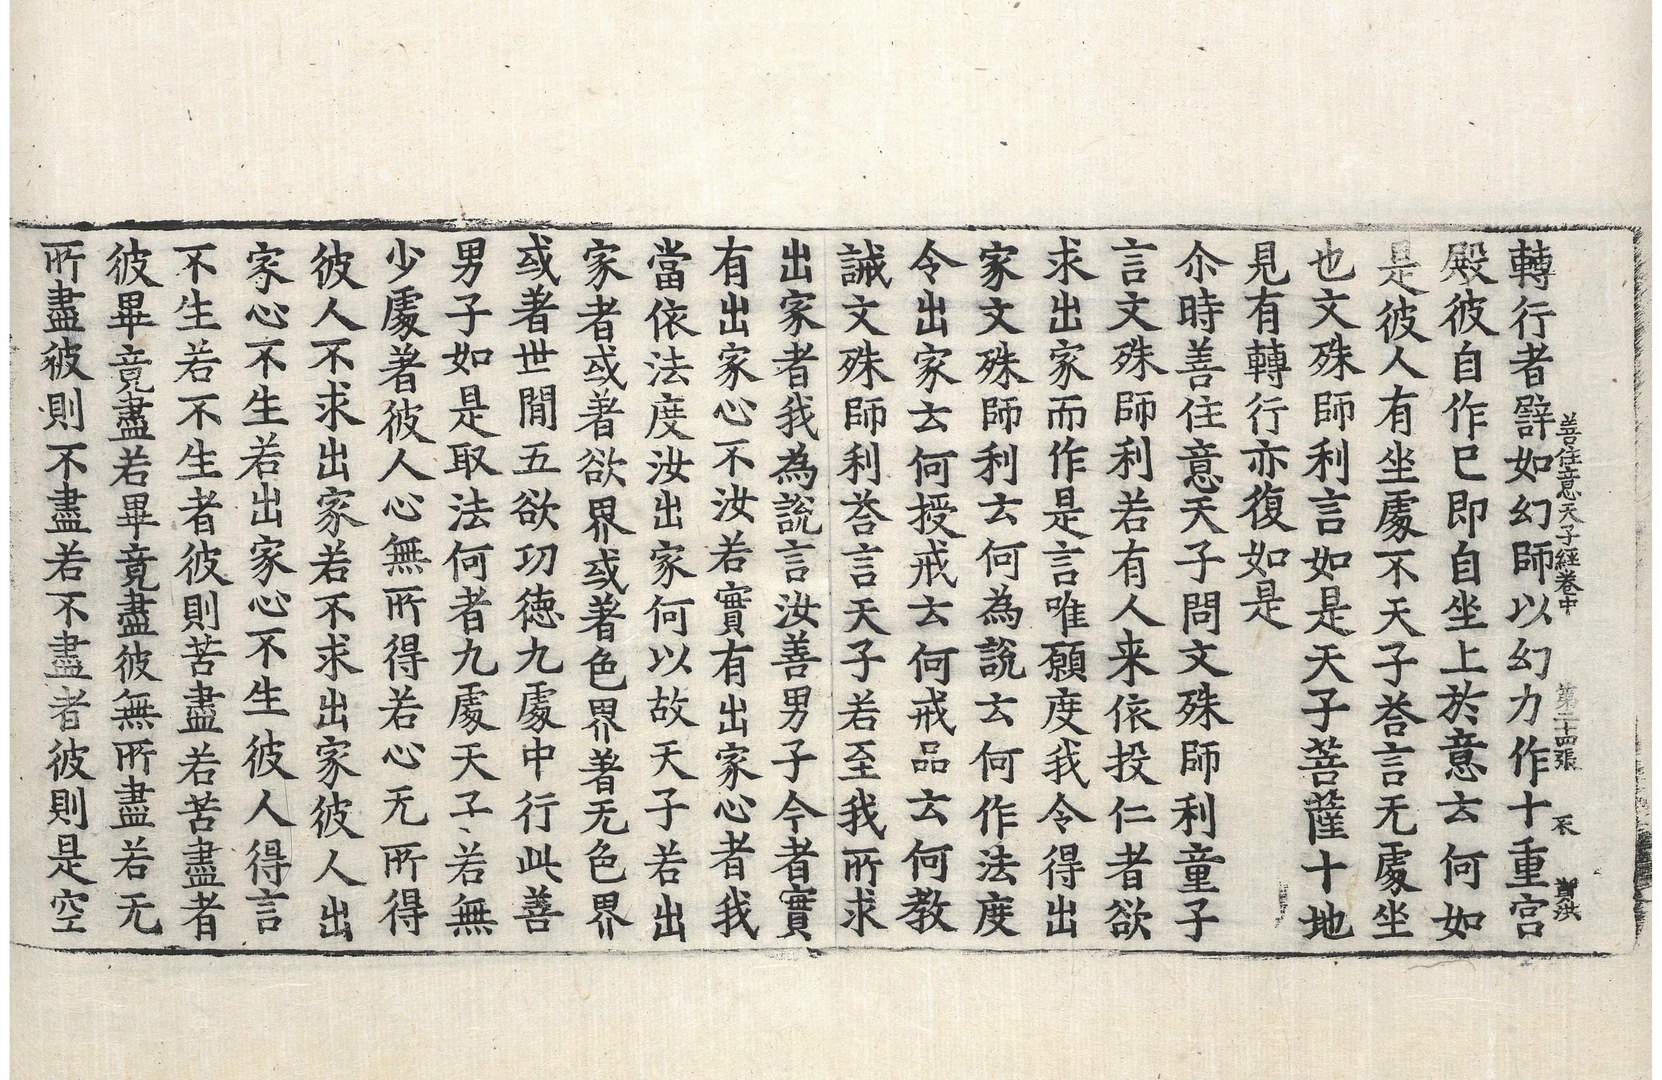 轉行者譬如幻師以幻力作十重宮
善住意天子經卷中 第二十四張 衣
殿彼自作已即自坐上於意云何如
是彼人有坐處不天子荅言无處坐
也文殊師利言如是天子菩薩十地
見有轉行亦復如是
尒時善住意天子問文殊師利童子
言文殊師利若有人来依投仁者欲
求出家而作是言唯願度我令得出
家文殊師利云何為說云何作法度
令出家云何授戒云何戒品云何教
誡文殊師利荅言天子若至我所求
出家者我為說言汝善男子今者實
有出家心不汝若實有出家心者我
當依法度汝出家何以故天子若出
家者或著欲界或著色界著无色界
或著世間五欲功徳九處中行此善
男子如是取法何者九處天子若無
少處著彼人心無所得若心无所得
彼人不求出家若不求出家彼人出
家心不生若出家心不生彼人得言
不生若不生者彼則苦盡若苦盡者
彼畢竟盡若畢竟盡彼無所盡若无
所盡彼則不盡若不盡者彼則是空